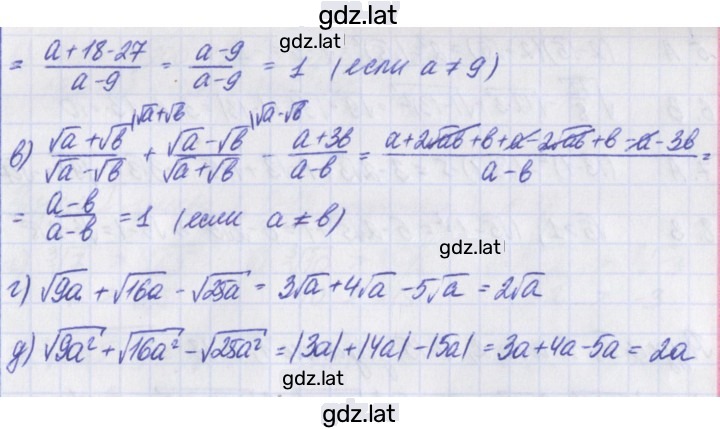 gdz.lat
= (a+18-27)/(a-9) = (a-9)/(a-9) = 1 (если a ≠ 9)
в) (√a+√в)/(√a-√в) |√a+√в + (√a-√в)/(√a+√в) |√a-√в - (a+3в)/(a-в) = (a+2√aв+в+a-2√aв+в-a-3в)/(a-в) =
= (a-в)/(a-в) = 1 (если a ≠ в)
gdz.lat
г) √9a + √16a - √25a = 3√a+4√a-5√a = 2√a
д) √9a² + √16a² - √25a² = |3a|+|4a|-|5a| = 3a+4a-5a = 2a
gdz.lat
gdz.lat